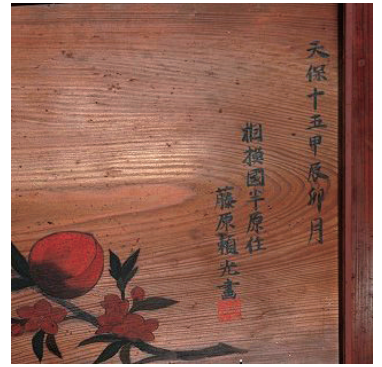 天保十五甲辰卯月
相模國半原住
藤原頼光畫